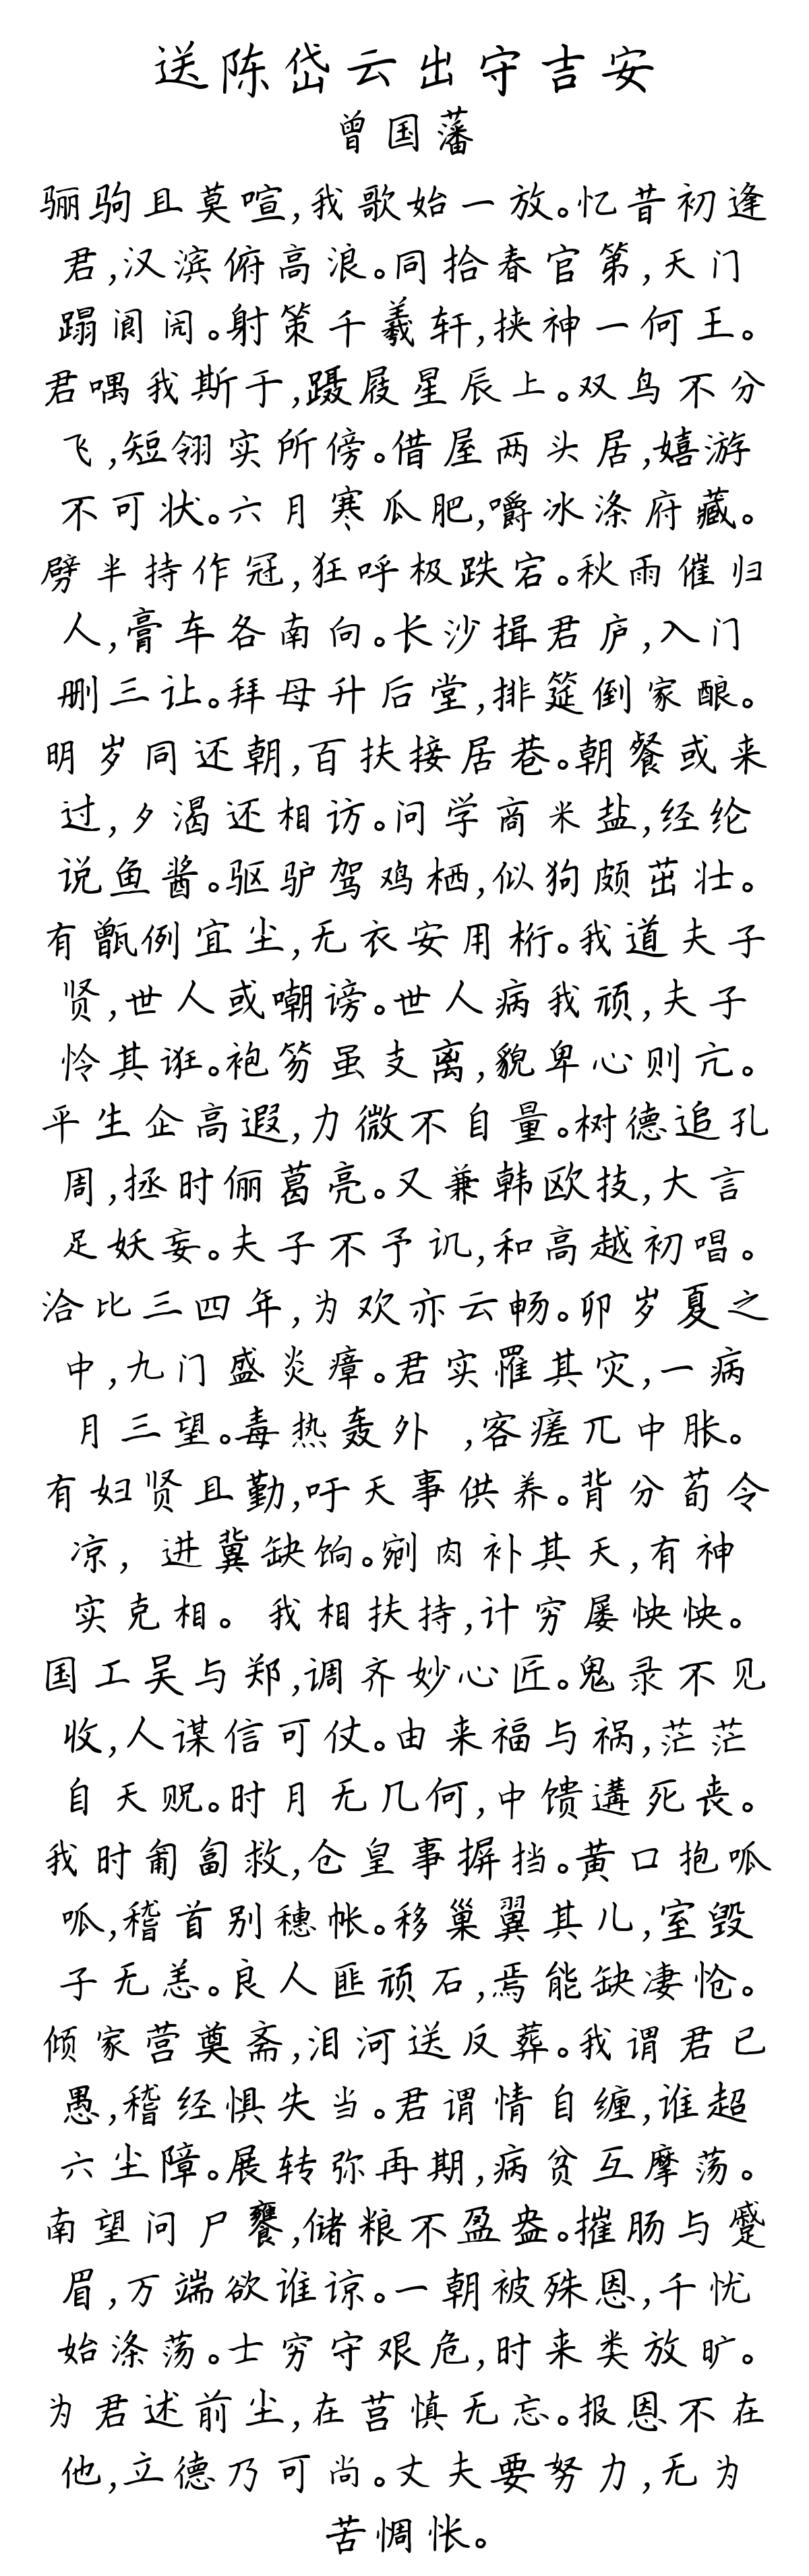 送陈岱云出守吉安
曾国藩
骊驹且莫喧,我歌始一放。忆昔初逢
君,汉滨俯高浪。同拾春官第,天门
蹋阆闶。射策千羲轩,挟神一何王。
君喁我斯于,蹑屐星辰上。双鸟不分
飞,短翎实所傍。借屋两头居,嬉游
不可状。六月寒瓜肥,嚼冰涤府藏。
劈半持作冠,狂呼极跌宕。秋雨催归
人,膏车各南向。长沙揖君庐,入门
删三让。拜母升后堂,排筵倒家酿。
明岁同还朝,百扶接居巷。朝餐或来
过,夕渴还相访。问学商米盐,经纶
说鱼酱。驱驴驾鸡栖,似狗颇茁壮。
有甑例宜尘,无衣安用桁。我道夫子
贤,世人或嘲谤。世人病我顽,夫子
怜其诳。袍笏虽支离,貌卑心则亢。
平生企高遐,力微不自量。树德追孔
周,拯时俪葛亮。又兼韩欧技,大言
足妖妄。夫子不予讥,和高越初唱。
洽比三四年,为欢亦云畅。卯岁夏之
中,九门盛炎瘴。君实罹其灾,一病
月三望。毒热轰外 ,客瘥兀中胀。
有妇贤且勤,吁天事供养。背分荀令
凉, 进冀缺饷。剜肉补其天,有神
实克相。 我相扶持,计穷屡怏怏。
国工吴与郑,调齐妙心匠。鬼录不见
收,人谋信可仗。由来福与祸,茫茫
自天贶。时月无几何,中馈遘死丧。
我时匍匐救,仓皇事摒挡。黄口抱呱
呱,稽首别穗帐。移巢翼其儿,室毁
子无恙。良人匪顽石,焉能缺凄怆。
倾家营奠斋,泪河送反葬。我谓君已
愚,稽经惧失当。君谓情自缠,谁超
六尘障。展转弥再期,病贫互摩荡。
南望问尸饔,储粮不盈盎。摧肠与蹙
眉,万端欲谁谅。一朝被殊恩,千忧
始涤荡。士穷守艰危,时来类放旷。
为君述前尘,在莒慎无忘。报恩不在
他,立德乃可尚。丈夫要努力,无为
苦惆怅。